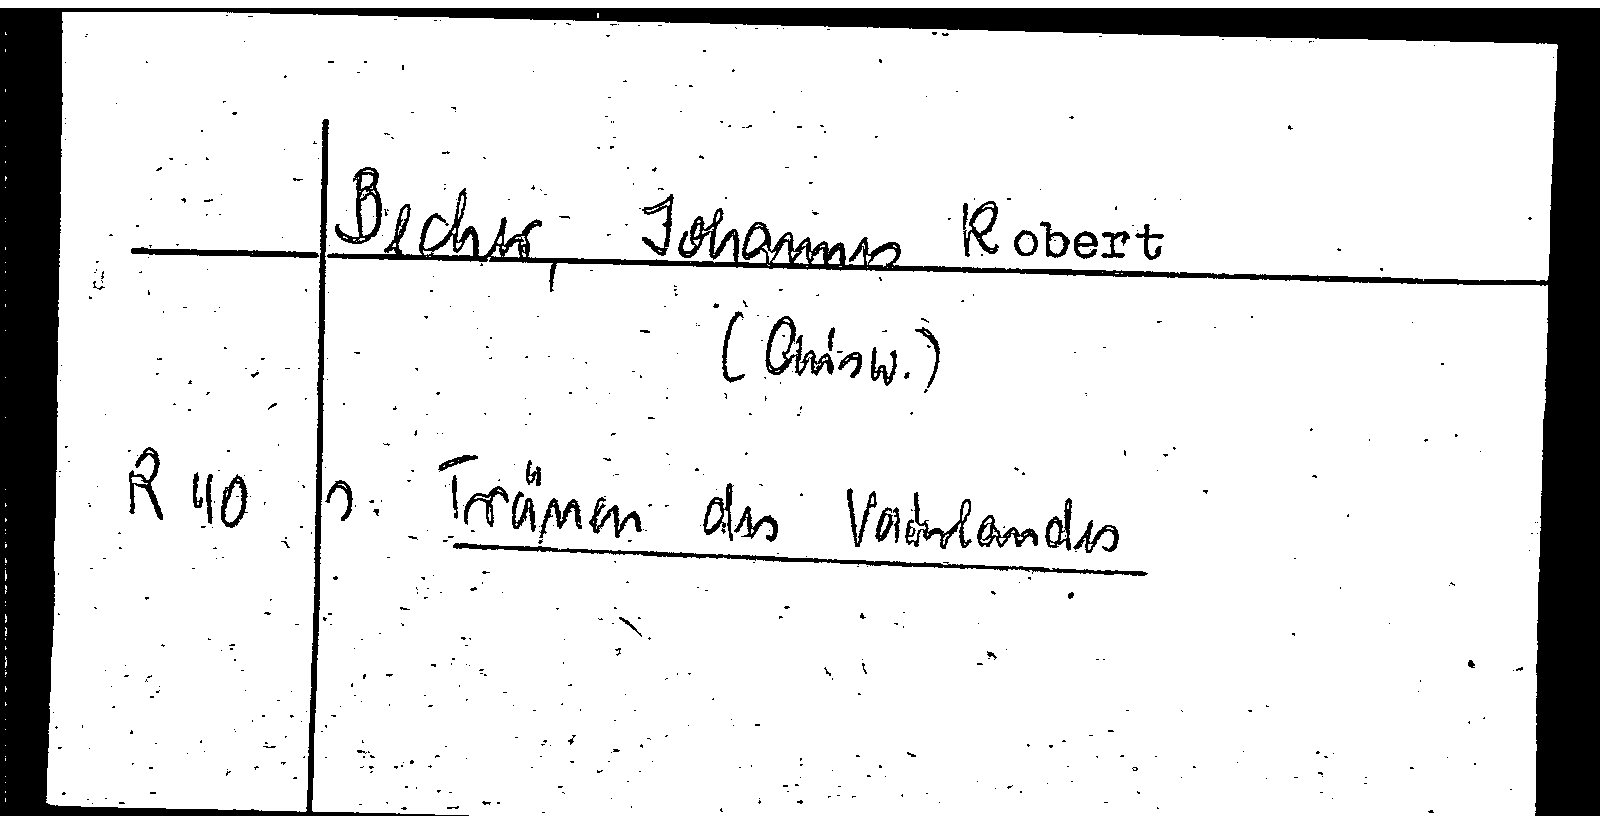 Becher, Johannes Robert
(Ausw.)
R 40 s. Tränen des Vaterlandes